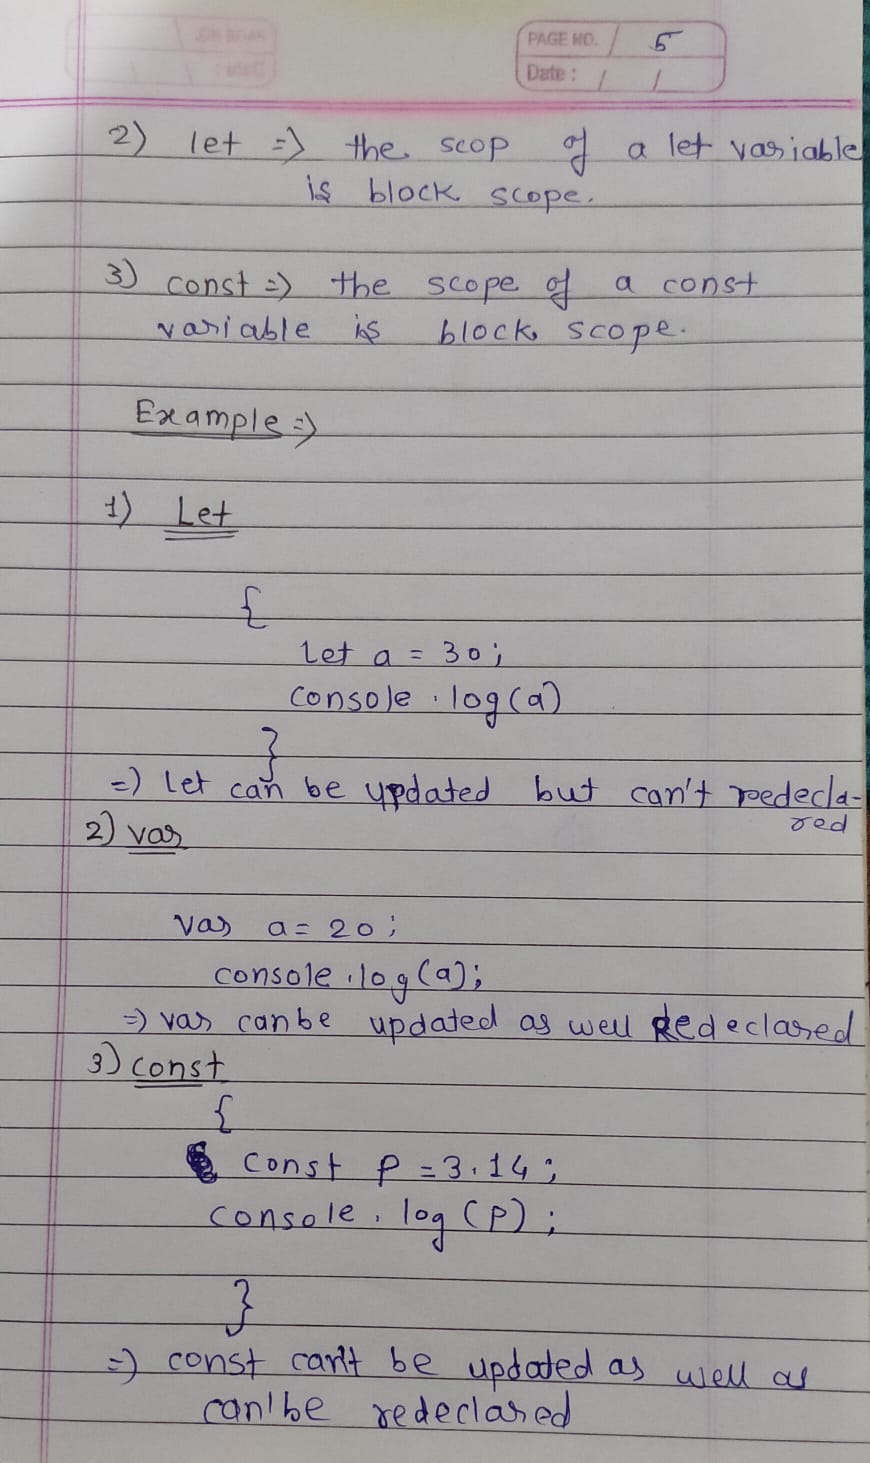 PAGE NO. / 5
Date : / /
2) let => the scop of a let variable
is block scope.
3) const => the scope of a const
variable is block scope.
Example =>
1) Let
{
Let a = 30;
console.log(a)
}
=> Let can be updated but can't redecla-
red
2) var
var a = 20;
console.log(a);
=> var can be updated as well Redeclared
3) const
{
const P = 3.14;
console.log(P);
}
=> const can't be updated as well as
can'be redeclared